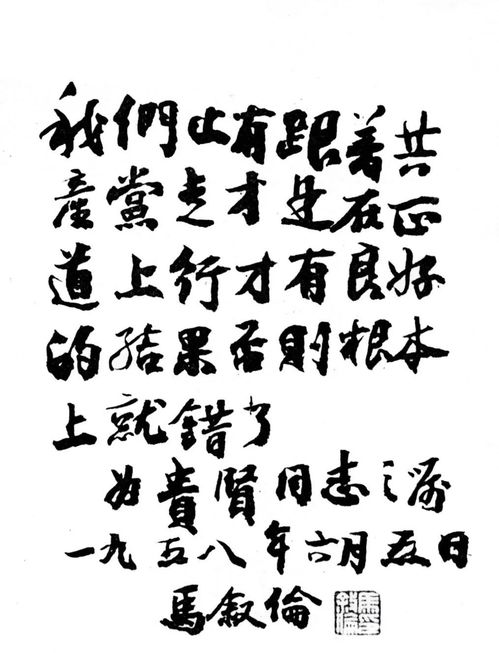 我們止有跟着共
產黨走才是在正
道上行才有良好
的結果否則根本
上就錯了
为貴賢同志之属
一九五八年六月五日
馬叙倫